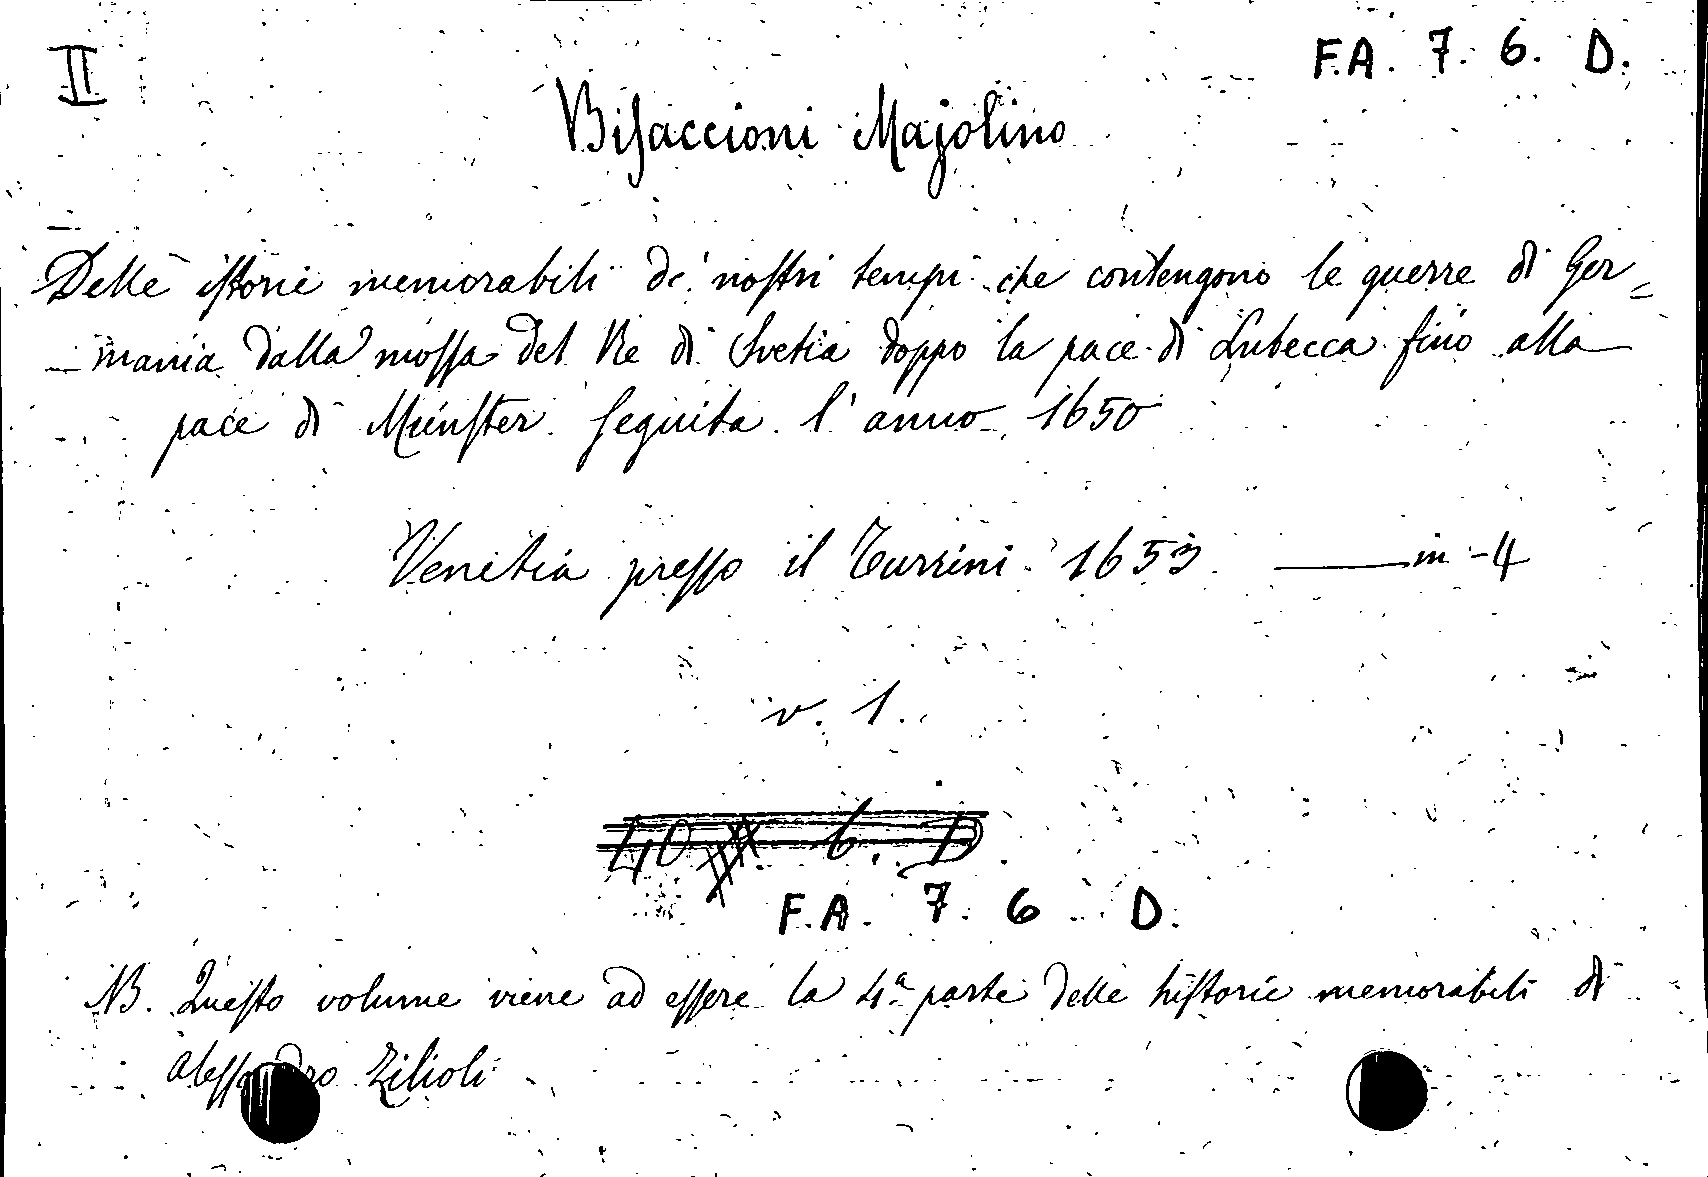 II
F.A. 7. 6. D.
Bisaccioni Majolino
Delle istorie memorabili de' nostri tempi che contengono le guerre di Ger=
mania dalla mossa del Re di Svetia doppo la pace di Lubecca fino alla
pace di Münster seguita l'anno 1650
Venitia presso il Turrini 1653 — in-4
v. 1.
40 6. D.
F.A. 7. 6 D.
NB. Questo volume viene ad essere la 4ª parte delle historie memorabili di
Alessandro Zilioli